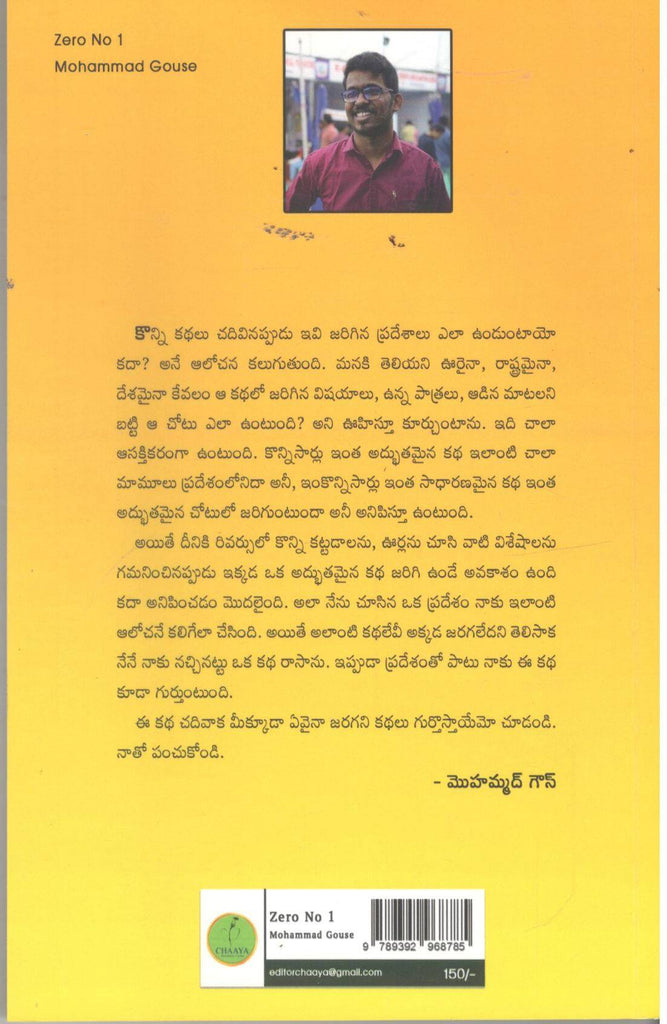 Zero No 1
Mohammad Gouse
కొన్ని కథలు చదివినప్పుడు ఇవి జరిగిన ప్రదేశాలు ఎలా ఉండుంటాయో
కదా? అనే ఆలోచన కలుగుతుంది. మనకి తెలియని ఊరైనా, రాష్ట్రమైనా,
దేశమైనా కేవలం ఆ కథలో జరిగిన విషయాలు, ఉన్న పాత్రలు, ఆడిన మాటలని
బట్టి ఆ చోటు ఎలా ఉంటుంది? అని ఊహిస్తూ కూర్చుంటాను. ఇది చాలా
ఆసక్తికరంగా ఉంటుంది. కొన్నిసార్లు ఇంత అద్భుతమైన కథ ఇలాంటి చాలా
మామూలు ప్రదేశంలోనిదా అనీ, ఇంకొన్నిసార్లు ఇంత సాధారణమైన కథ ఇంత
అద్భుతమైన చోటులో జరిగుంటుందా అనీ అనిపిస్తూ ఉంటుంది.
అయితే దీనికి రివర్సులో కొన్ని కట్టడాలను, ఊర్లను చూసి వాటి విశేషాలను
గమనించినప్పుడు ఇక్కడ ఒక అద్భుతమైన కథ జరిగి ఉండే అవకాశం ఉంది
కదా అనిపించడం మొదలైంది. అలా నేను చూసిన ఒక ప్రదేశం నాకు ఇలాంటి
ఆలోచనే కలిగేలా చేసింది. అయితే అలాంటి కథలేవీ అక్కడ జరగలేదని తెలిసాక
నేనే నాకు నచ్చినట్టు ఒక కథ రాసాను. ఇప్పుడా ప్రదేశంతో పాటు నాకు ఈ కథ
కూడా గుర్తుంటుంది.
ఈ కథ చదివాక మీక్కూడా ఏవైనా జరగని కథలు గుర్తొస్తాయేమో చూడండి.
నాతో పంచుకోండి.
- మొహమ్మద్ గౌస్
Zero No 1
Mohammad Gouse
9 789392 968785
CHAAYA
editorchaaya@gmail.com
150/-